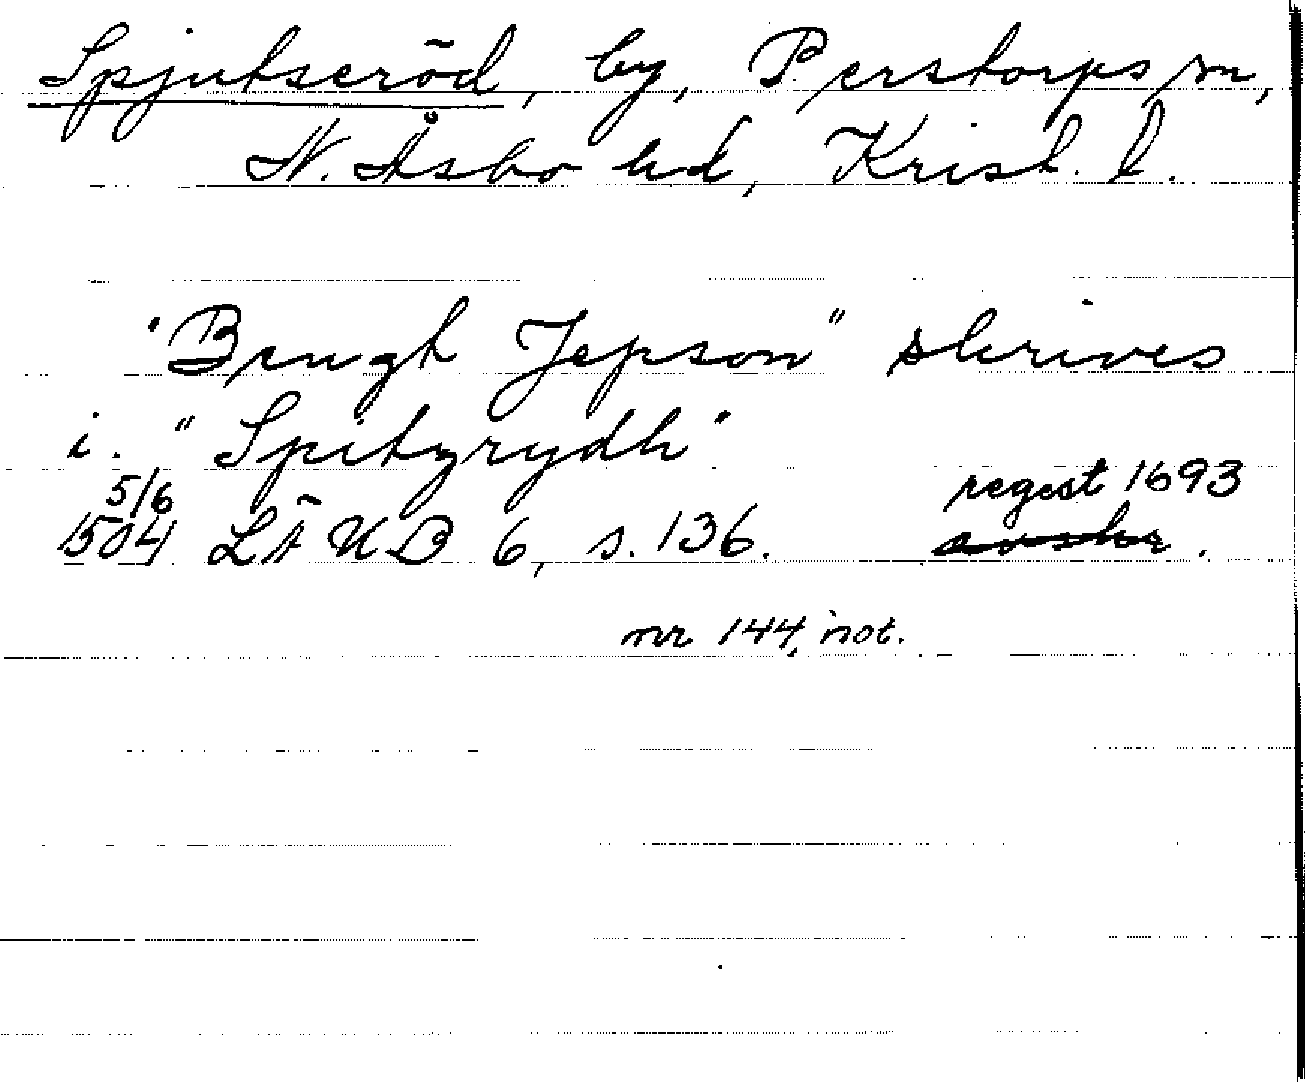 Spjutseröd, by, Perstorps sn,
N. Åsbo hd, Krist. l.
"Bengh Jepson" skrives
i. "Spitzrydh"
5/6 regest 1693
1504 LÄUB 6, s. 136. avskr.
nr 144, not.